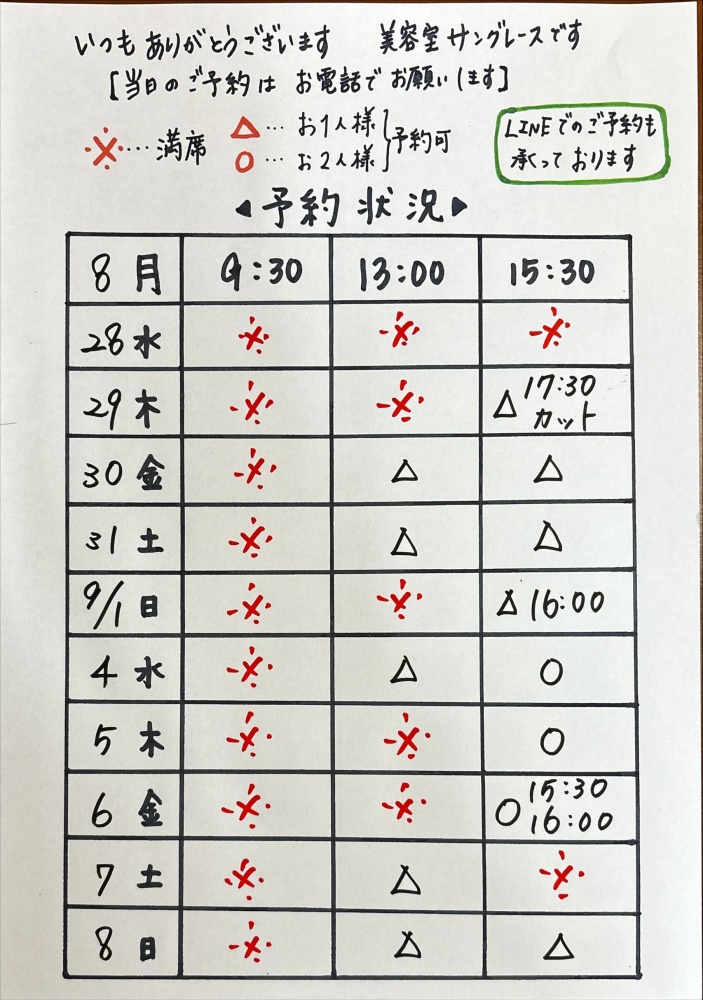 いつもありがとうございます 美容室サングレースです
[当日のご予約は お電話で お願いします]
※…満席
△…お1人様
○…お2人様
予約可
LINEでのご予約も
承っております
◀予約状況▶
8月 9:30 13:00 15:30
28 水 ※ ※ ※
29 木 ※ ※ △ 17:30 カット
30 金 ※ △ △
31 土 ※ △ △
9/1 日 ※ ※ △ 16:00
4 水 ※ △ ○
5 木 ※ ※ ○
6 金 ※ ※ ○ 15:30 16:00
7 土 ※ △ ※
8 日 ※ △ △